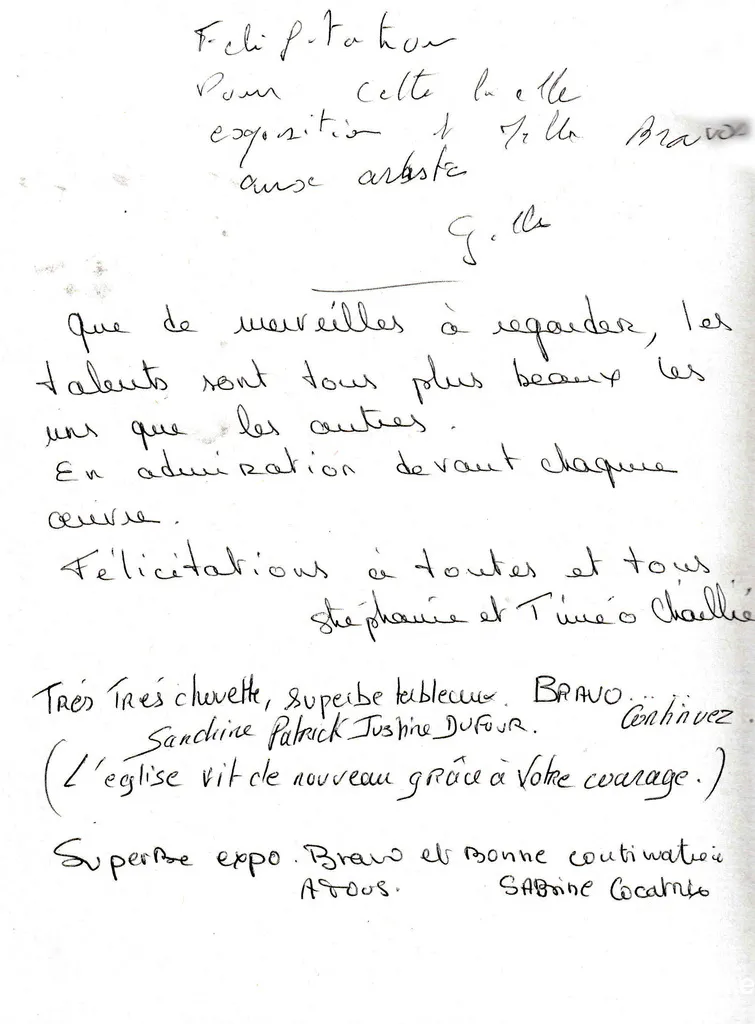 Felicitation
Pour cette belle
exposition Bravo
aux artiste
G.
Que de merveilles à regarder, les
talents sont tous plus beaux les
uns que les autres.
En admiration devant chaque
œuvre.
Félicitations à toutes et tous
Stéphanie et Timéo
Trés Trés chouette, superbe tableaux. BRAVO......
Continuez.
Sandrine Patrick Justine DUFOUR.
(L'église vit de nouveau grâce à votre courage.)
Superbe expo. Bravo et Bonne continuation
A TOUS. SABrine